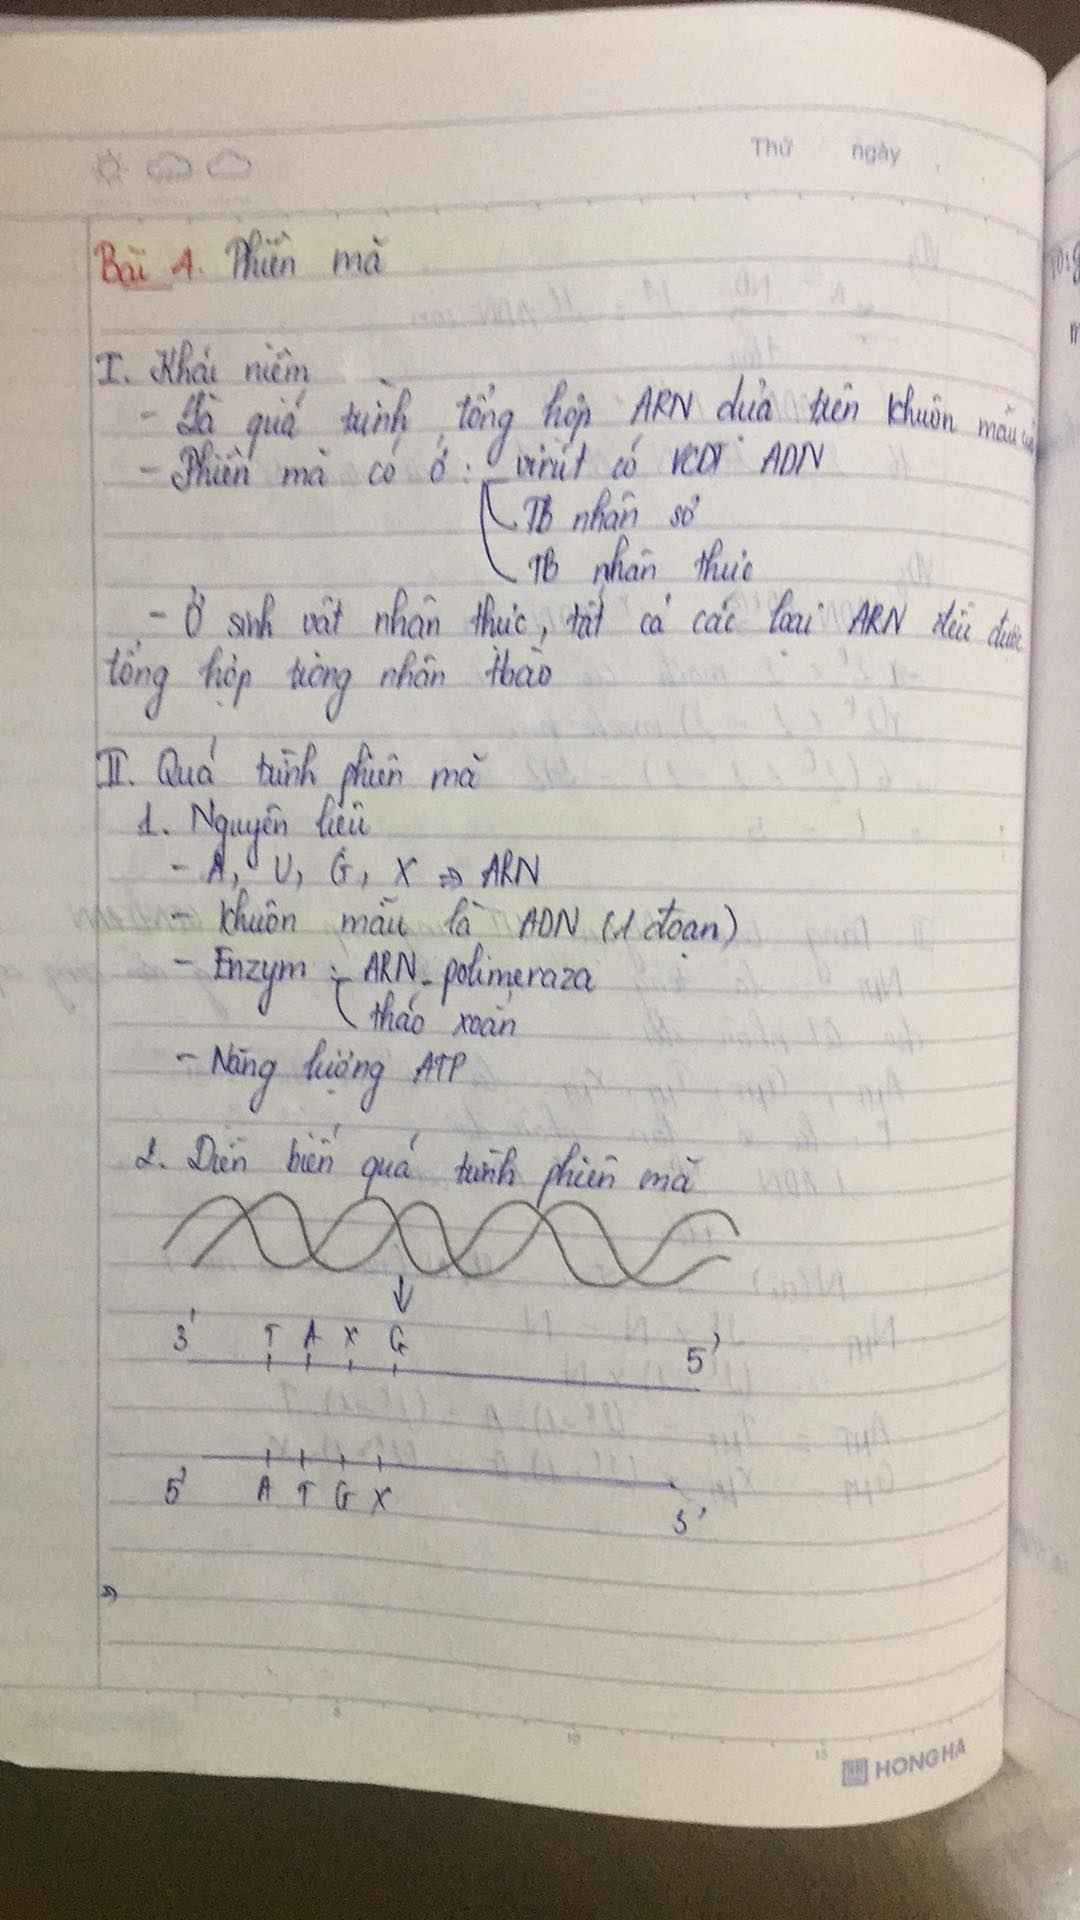 Thứ ngày
Bài 4. Phiên mã
I. Khái niệm
- Là quá trình tổng hợp ARN dựa trên khuôn mẫu
- Phiên mã có ở: - virút có VCDT ADN
TB nhân sơ
TB nhân thực
- Ở sinh vật nhân thực, tất cả các loại ARN đều được
tổng hợp trong nhân tbào
II. Quá trình phiên mã
1. Nguyên liệu
- A, U, G, X => ARN
- khuôn mẫu là ADN (1 đoạn)
- Enzym: ARN-polimeraza
tháo xoắn
- Năng lượng ATP
2. Diễn biến quá trình phiên mã
3' T A X G 5'
5' A T G X 3'
HONG HA